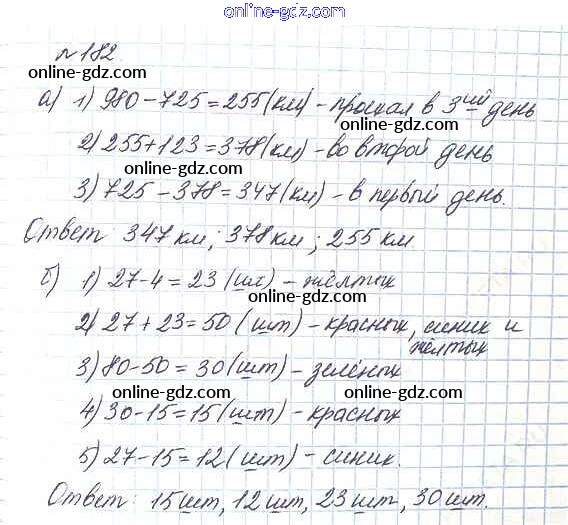 online-gdz.com
№182.
online-gdz.com online-gdz.com
а) 1) 980-725=255(км)-проехал в 3ий день
online-gdz.com
2) 255+123=378(км)-во второй день
online-gdz.com
3) 725-378=347(км)-в первый день.
online-gdz.com
Ответ: 347 км; 378 км; 255 км.
online-gdz.com
б) 1) 27-4=23 (шт)-жёлтых
online-gdz.com
2) 27+23=50 (шт)-красных, синих и жёлтых
online-gdz.com
3) 80-50=30(шт)-зелёных
online-gdz.com online-gdz.com
4) 30-15=15(шт)-красных
online-gdz.com
5) 27-15=12(шт)-синих.
online-gdz.com
Ответ: 15 шт, 12 шт, 23 шт, 30 шт.